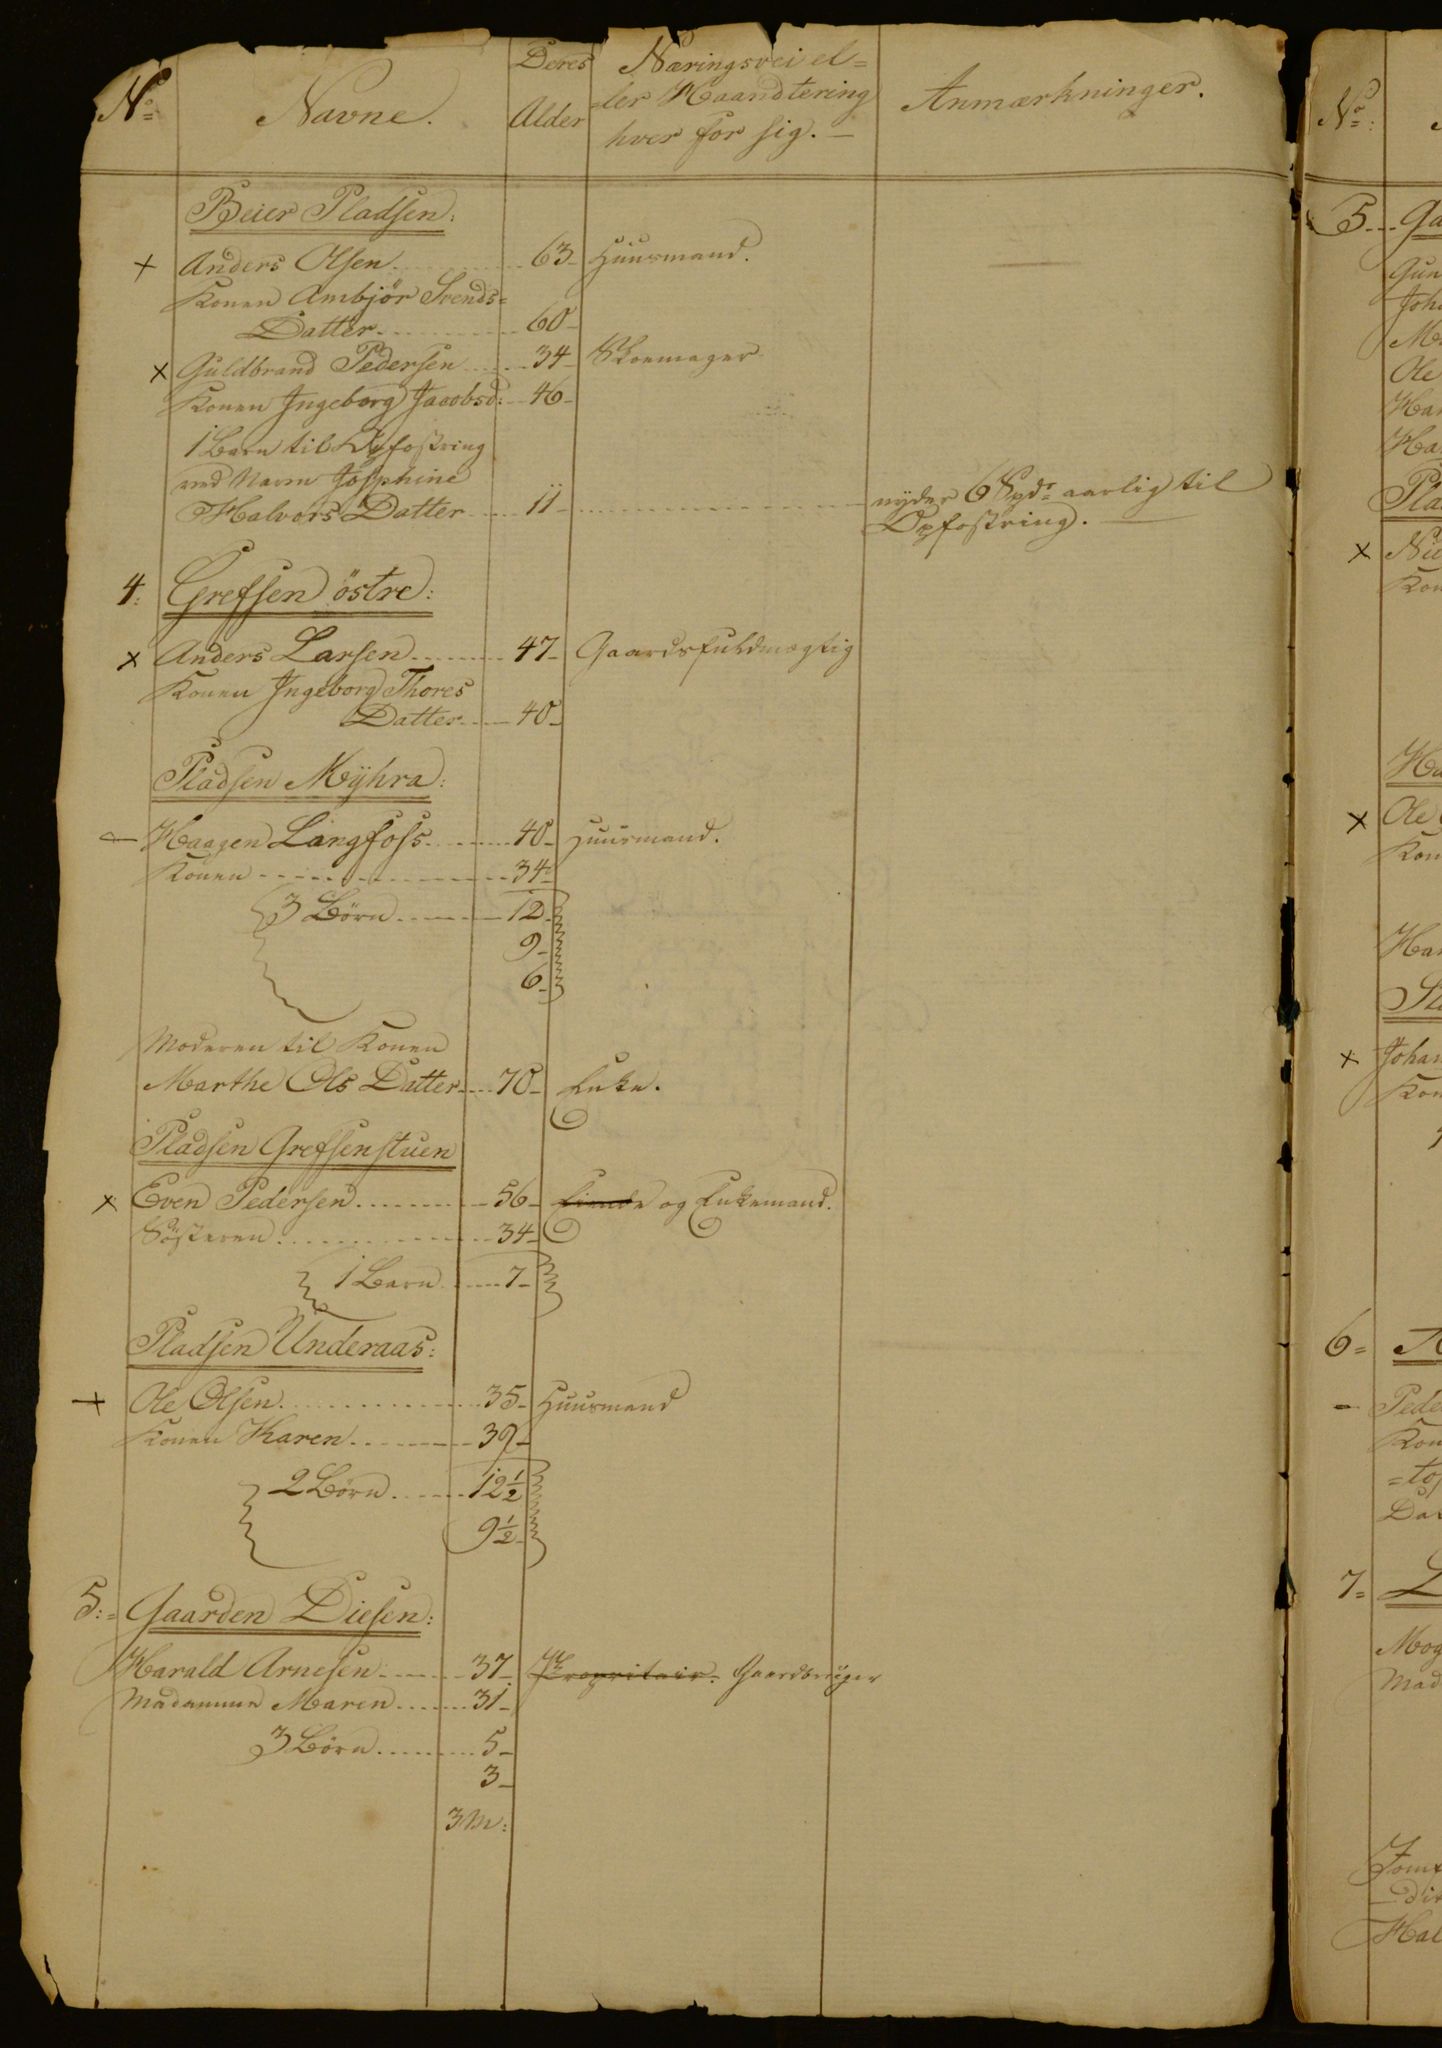 No Navne. Deres Alder Næringsvei el=
=ler Haandtering
hver for sig. — Anmærkninger.
Beier Pladsen:
x Anders Olsen 63 Huusmand.
Konen Ambjör Svends=
Datter 60
x Guldbrand Pedersen 34 Skoemager
Konen Ingeborg Jacobsd: 46
1 Barn til Opfostring
ved Navn Josephine
Halvors Datter 11 nyder 6 Spdr aarlig til
Opfostring.
4: Grefsen östre:
x Anders Larsen 47 Gaardsfuldmægtig
Konen Ingeborg Thores
Datter 40
Pladsen Mÿhra:
Haagen Langfoss 40 Huusmand.
Konen 34
3 Börn 12
9
6
Moderen til Konen
Marthe Ols Datter 70 Enke.
Pladsen Grefsenstuen
x Even Pedersen 56 og Enkemand.
Sösteren 34
1 Barn 7
Pladsen Underaas:
x Ole Olsen 35 Huusmand
Konen Karen 39
2 Börn 12½
9½
5: Gaarden Diesen:
Harald Arnesen 37 Propritair. Gaardbruger
Madammen Maren 31
3 Börn 5
3
3 M:
No
5
x
x
x
6=
7=